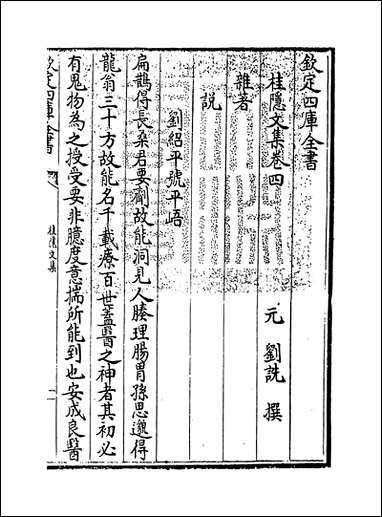 欽定四庫全書
桂隱文集卷四
元 劉詵 撰
雜著
說
劉紹平號平㟳
扁鵲得長桑君要劑故能洞見人腠理腸胃孫思邈得
龍翁三十方故能名千載療百世蓋醫之神者其初必
有鬼物為之授受要非臆度意揣所能到也安成良醫
欽定四庫全書
桂隱文集
一